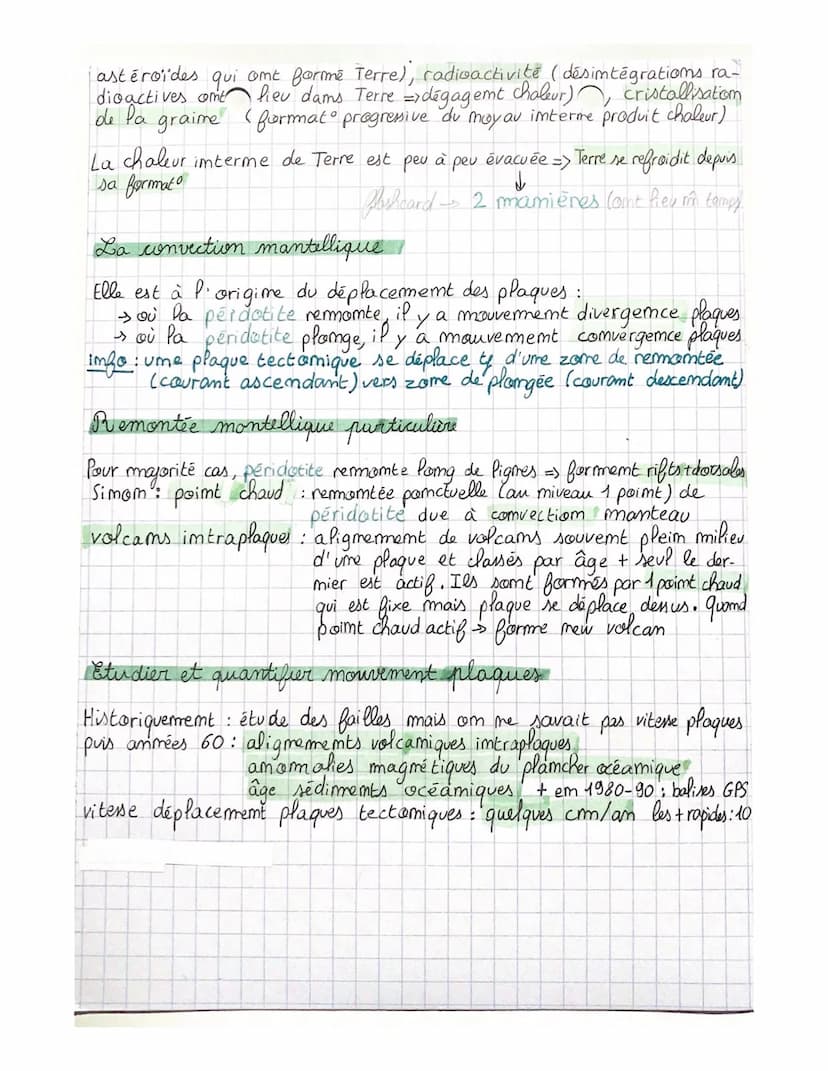 astéroïdes qui ont formé Terre), radioactivité (désintégrations ra-
dioactives ont lieu dans Terre => dégagemt chaleur), cristallisation
de la graine (format° progressive du noyau interne produit chaleur)
La chaleur interne de Terre est peu à peu évacuée => Terre se refroidit depuis
sa format°
↓
flashcard → 2 manières (ont lieu m̂ temps)
La convection mantellique
Elle est à l'origine du déplacement des plaques :
→ où la péridotite remonte, il y a mouvement divergence plaques
→ où la péridotite plonge, il y a mouvement convergence plaques
info : une plaque tectonique se déplace tj d'une zone de remontée
(courant ascendant) vers zone de plongée (courant descendant)
Remontée mantellique particulière
Pour majorité cas, péridotite remonte long de lignes => forment rifts + dorsales
Sinon : point chaud : remontée ponctuelle (au niveau 1 point) de
péridotite due à convection manteau
volcans intraplaques : alignement de volcans souvent plein milieu
d'une plaque et classés par âge + seul le der-
nier est actif. Ils sont formés par 1 point chaud
qui est fixe mais plaque se déplace dessus. Quand
point chaud actif → forme new volcan
Etudier et quantifier mouvement plaques
Historiquement : étude des failles mais on ne savait pas vitesse plaques
puis années 60 : alignements volcaniques intraplaques
anomalies magnétiques du plancher océanique
âge sédiments océaniques + en 1980-90 : balises GPS
vitesse déplacement plaques tectoniques : quelques cm/an les + rapides : 10